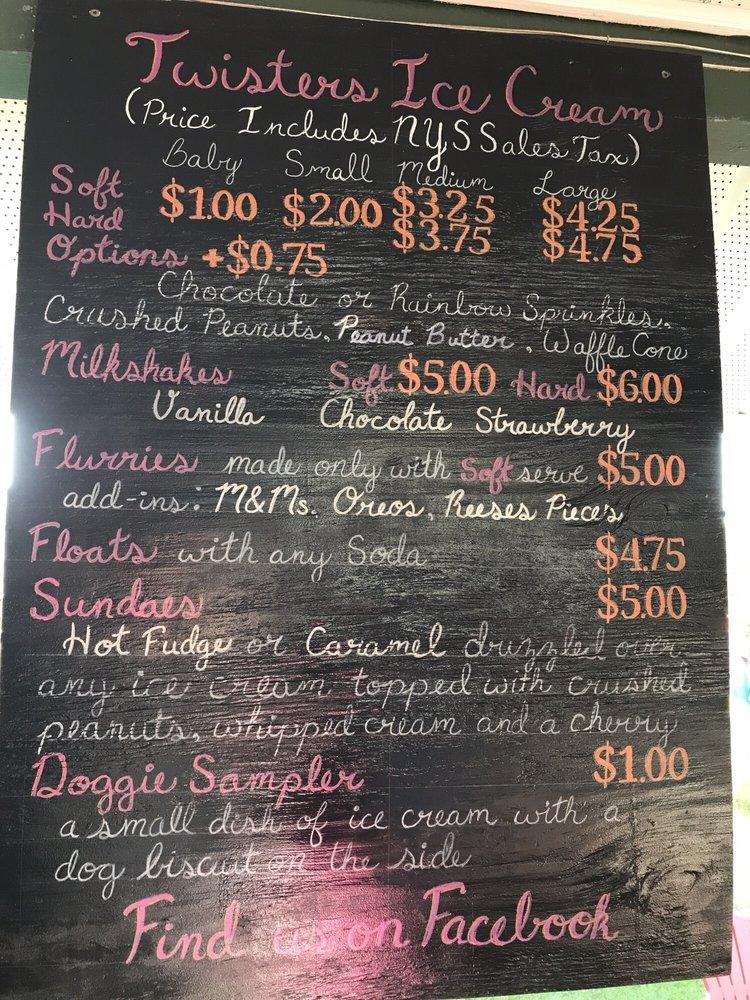 Twisters Ice Cream
(Price Includes NYS Sales Tax)
Baby Small Medium Large
Soft $1.00 $2.00 $3.25 $4.25
Hard $3.75 $4.75
Options +$0.75
Chocolate or Rainbow Sprinkles,
Crushed Peanuts, Peanut Butter, Waffle Cone
Milkshakes Soft $5.00 Hard $6.00
Vanilla Chocolate Strawberry
Flurries made only with Soft serve $5.00
add-ins: M&Ms, Oreos, Reeses Piece's
Floats with any Soda $4.75
Sundaes $5.00
Hot Fudge or Caramel drizzled over
any ice cream topped with crushed
peanuts, whipped cream and a cherry
Doggie Sampler $1.00
a small dish of ice cream with a
dog biscuit on the side
Find us on Facebook